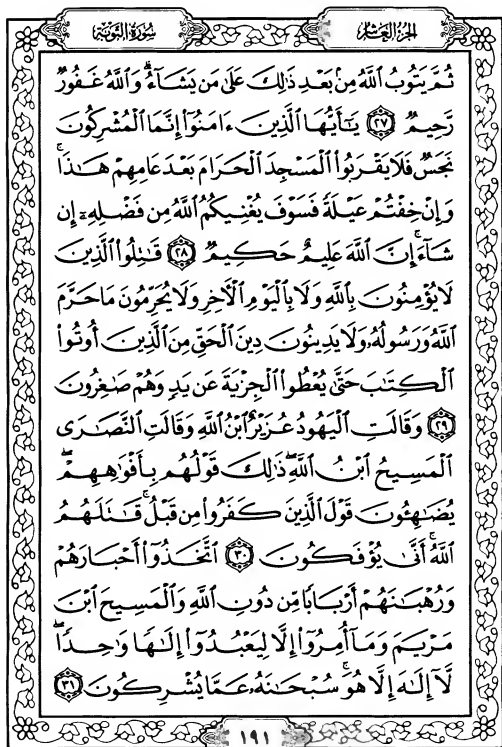 سُورَةُ التَّوْبَةِ
الجُزْءُ العَاشِرُ
ثُمَّ يَتُوبُ ٱللَّهُ مِنۢ بَعْدِ ذَٰلِكَ عَلَىٰ مَن يَشَآءُ ۗ وَٱللَّهُ غَفُورٌ
رَّحِيمٌ ٢٧ يَٰٓأَيُّهَا ٱلَّذِينَ ءَامَنُوٓا۟ إِنَّمَا ٱلْمُشْرِكُونَ
نَجَسٌ فَلَا يَقْرَبُوا۟ ٱلْمَسْجِدَ ٱلْحَرَامَ بَعْدَ عَامِهِمْ هَٰذَا ۚ
وَإِنْ خِفْتُمْ عَيْلَةً فَسَوْفَ يُغْنِيكُمُ ٱللَّهُ مِن فَضْلِهِۦٓ إِن
شَآءَ ۚ إِنَّ ٱللَّهَ عَلِيمٌ حَكِيمٌ ٢٨ قَٰتِلُوا۟ ٱلَّذِينَ
لَا يُؤْمِنُونَ بِٱللَّهِ وَلَا بِٱلْيَوْمِ ٱلْءَاخِرِ وَلَا يُحَرِّمُونَ مَا حَرَّمَ
ٱللَّهُ وَرَسُولُهُۥ وَلَا يَدِينُونَ دِينَ ٱلْحَقِّ مِنَ ٱلَّذِينَ أُوتُوا۟
ٱلْكِتَٰبَ حَتَّىٰ يُعْطُوا۟ ٱلْجِزْيَةَ عَن يَدٍ وَهُمْ صَٰغِرُونَ
٢٩ وَقَالَتِ ٱلْيَهُودُ عُزَيْرٌ ٱبْنُ ٱللَّهِ وَقَالَتِ ٱلنَّصَٰرَى
ٱلْمَسِيحُ ٱبْنُ ٱللَّهِ ۖ ذَٰلِكَ قَوْلُهُم بِأَفْوَٰهِهِمْ ۖ
يُضَٰهِـُٔونَ قَوْلَ ٱلَّذِينَ كَفَرُوا۟ مِن قَبْلُ ۚ قَٰتَلَهُمُ
ٱللَّهُ ۚ أَنَّىٰ يُؤْفَكُونَ ٣٠ ٱتَّخَذُوٓا۟ أَحْبَارَهُمْ
وَرُهْبَٰنَهُمْ أَرْبَابًا مِّن دُونِ ٱللَّهِ وَٱلْمَسِيحَ ٱبْنَ
مَرْيَمَ وَمَآ أُمِرُوٓا۟ إِلَّا لِيَعْبُدُوٓا۟ إِلَٰهًا وَٰحِدًا ۖ
لَّآ إِلَٰهَ إِلَّا هُوَ ۚ سُبْحَٰنَهُۥ عَمَّا يُشْرِكُونَ ٣١
١٩١